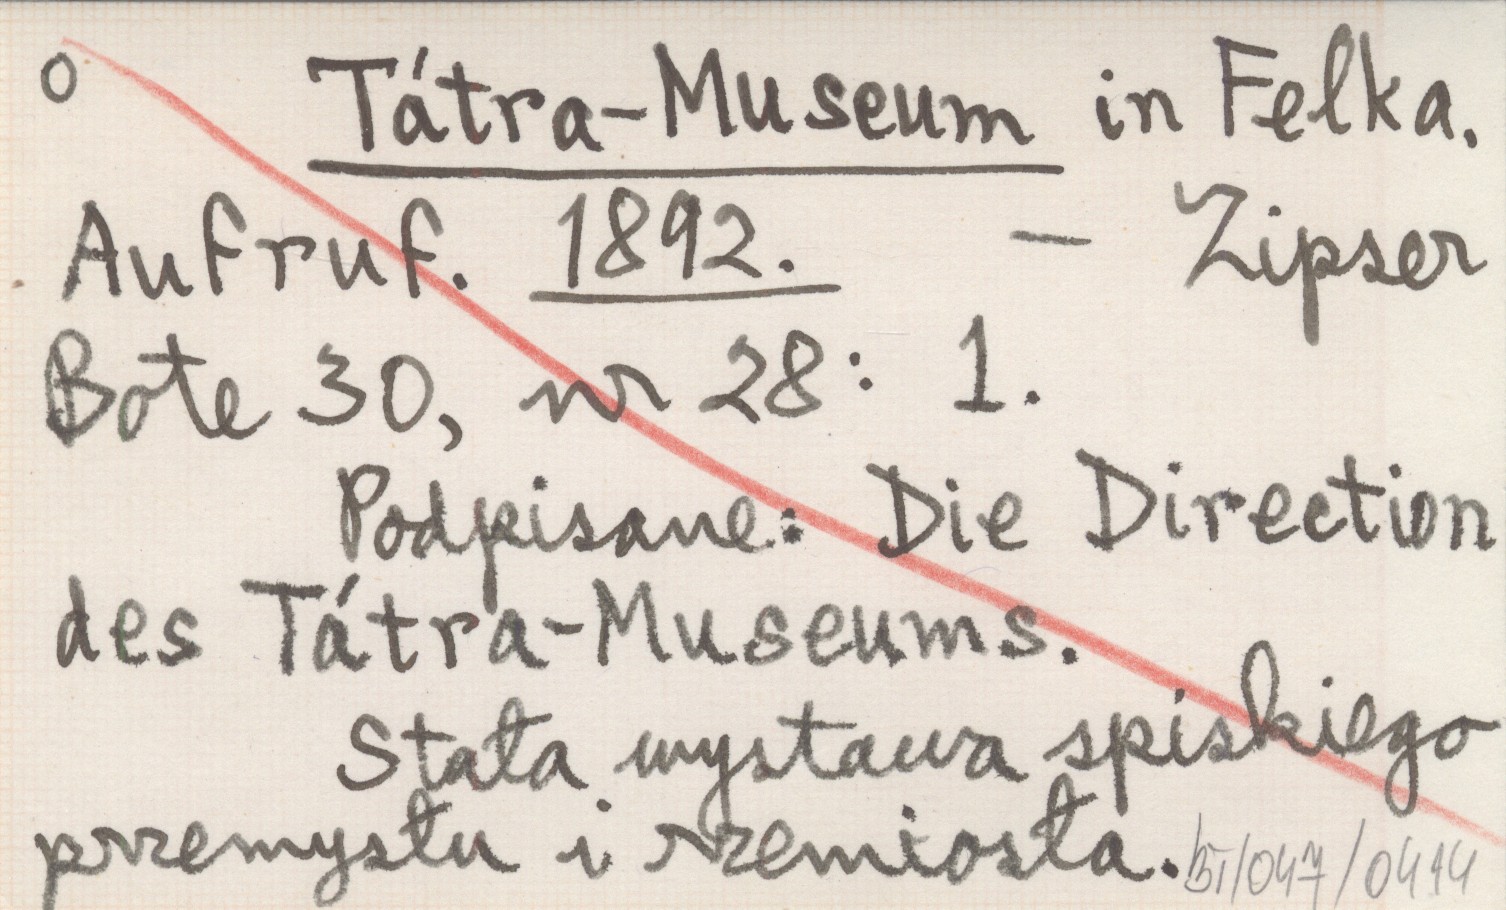 o Tátra-Museum in Felka.
Aufruf. 1892. — Zipser
Bote 30, nr 28: 1.
Podpisane: Die Direction
des Tátra-Museums.
Stała wystawa spiskiego
przemysłu i rzemiosła.
/047/0414